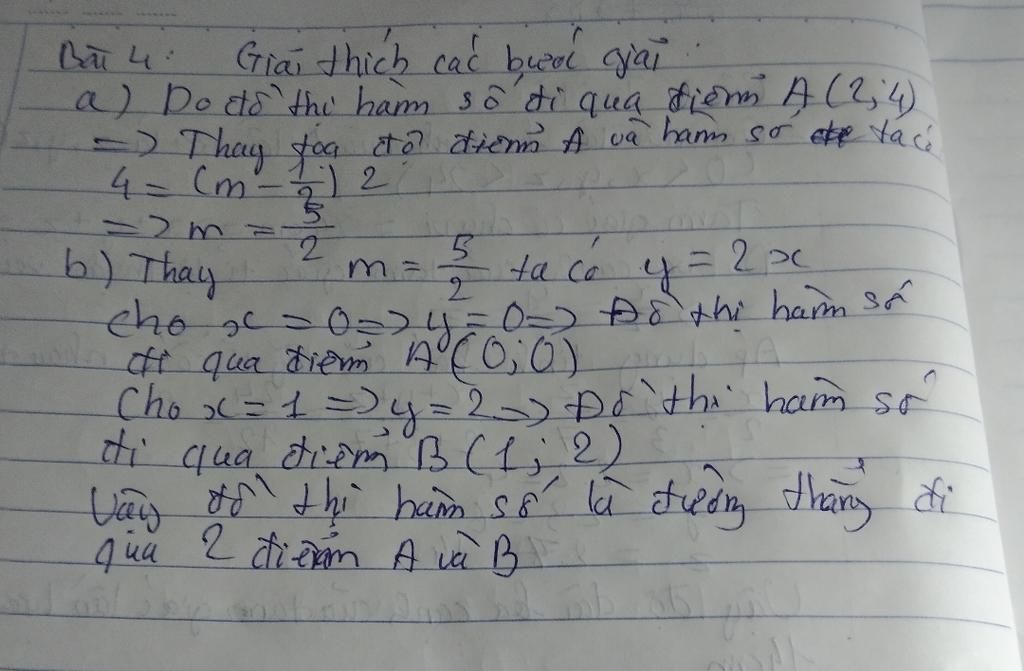 Bài 4: Giải thích các bước giải:
a) Do đồ thị hàm số đi qua điểm A(2;4)
=> Thay tọa độ điểm A và hàm số ta có
4 = (m - 1/2) 2
=> m = 5/2
b) Thay m = 5/2 ta có y = 2x
Cho x = 0 => y = 0 => Đồ thị hàm số
đi qua điểm A(0;0)
Cho x = 1 => y = 2 => Đồ thị hàm số
đi qua điểm B(1;2)
Vậy đồ thị hàm số là đường thẳng đi
qua 2 điểm A và B